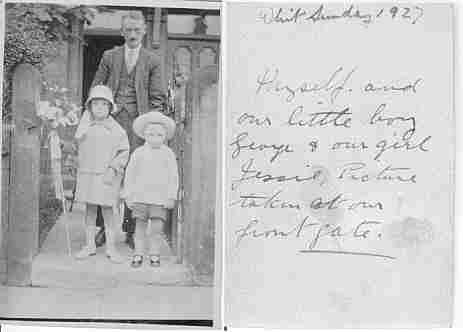 Whit Sunday 1927
Myself. and
our little boy
George & our girl
Jessie, Picture
taken at our
front gate.